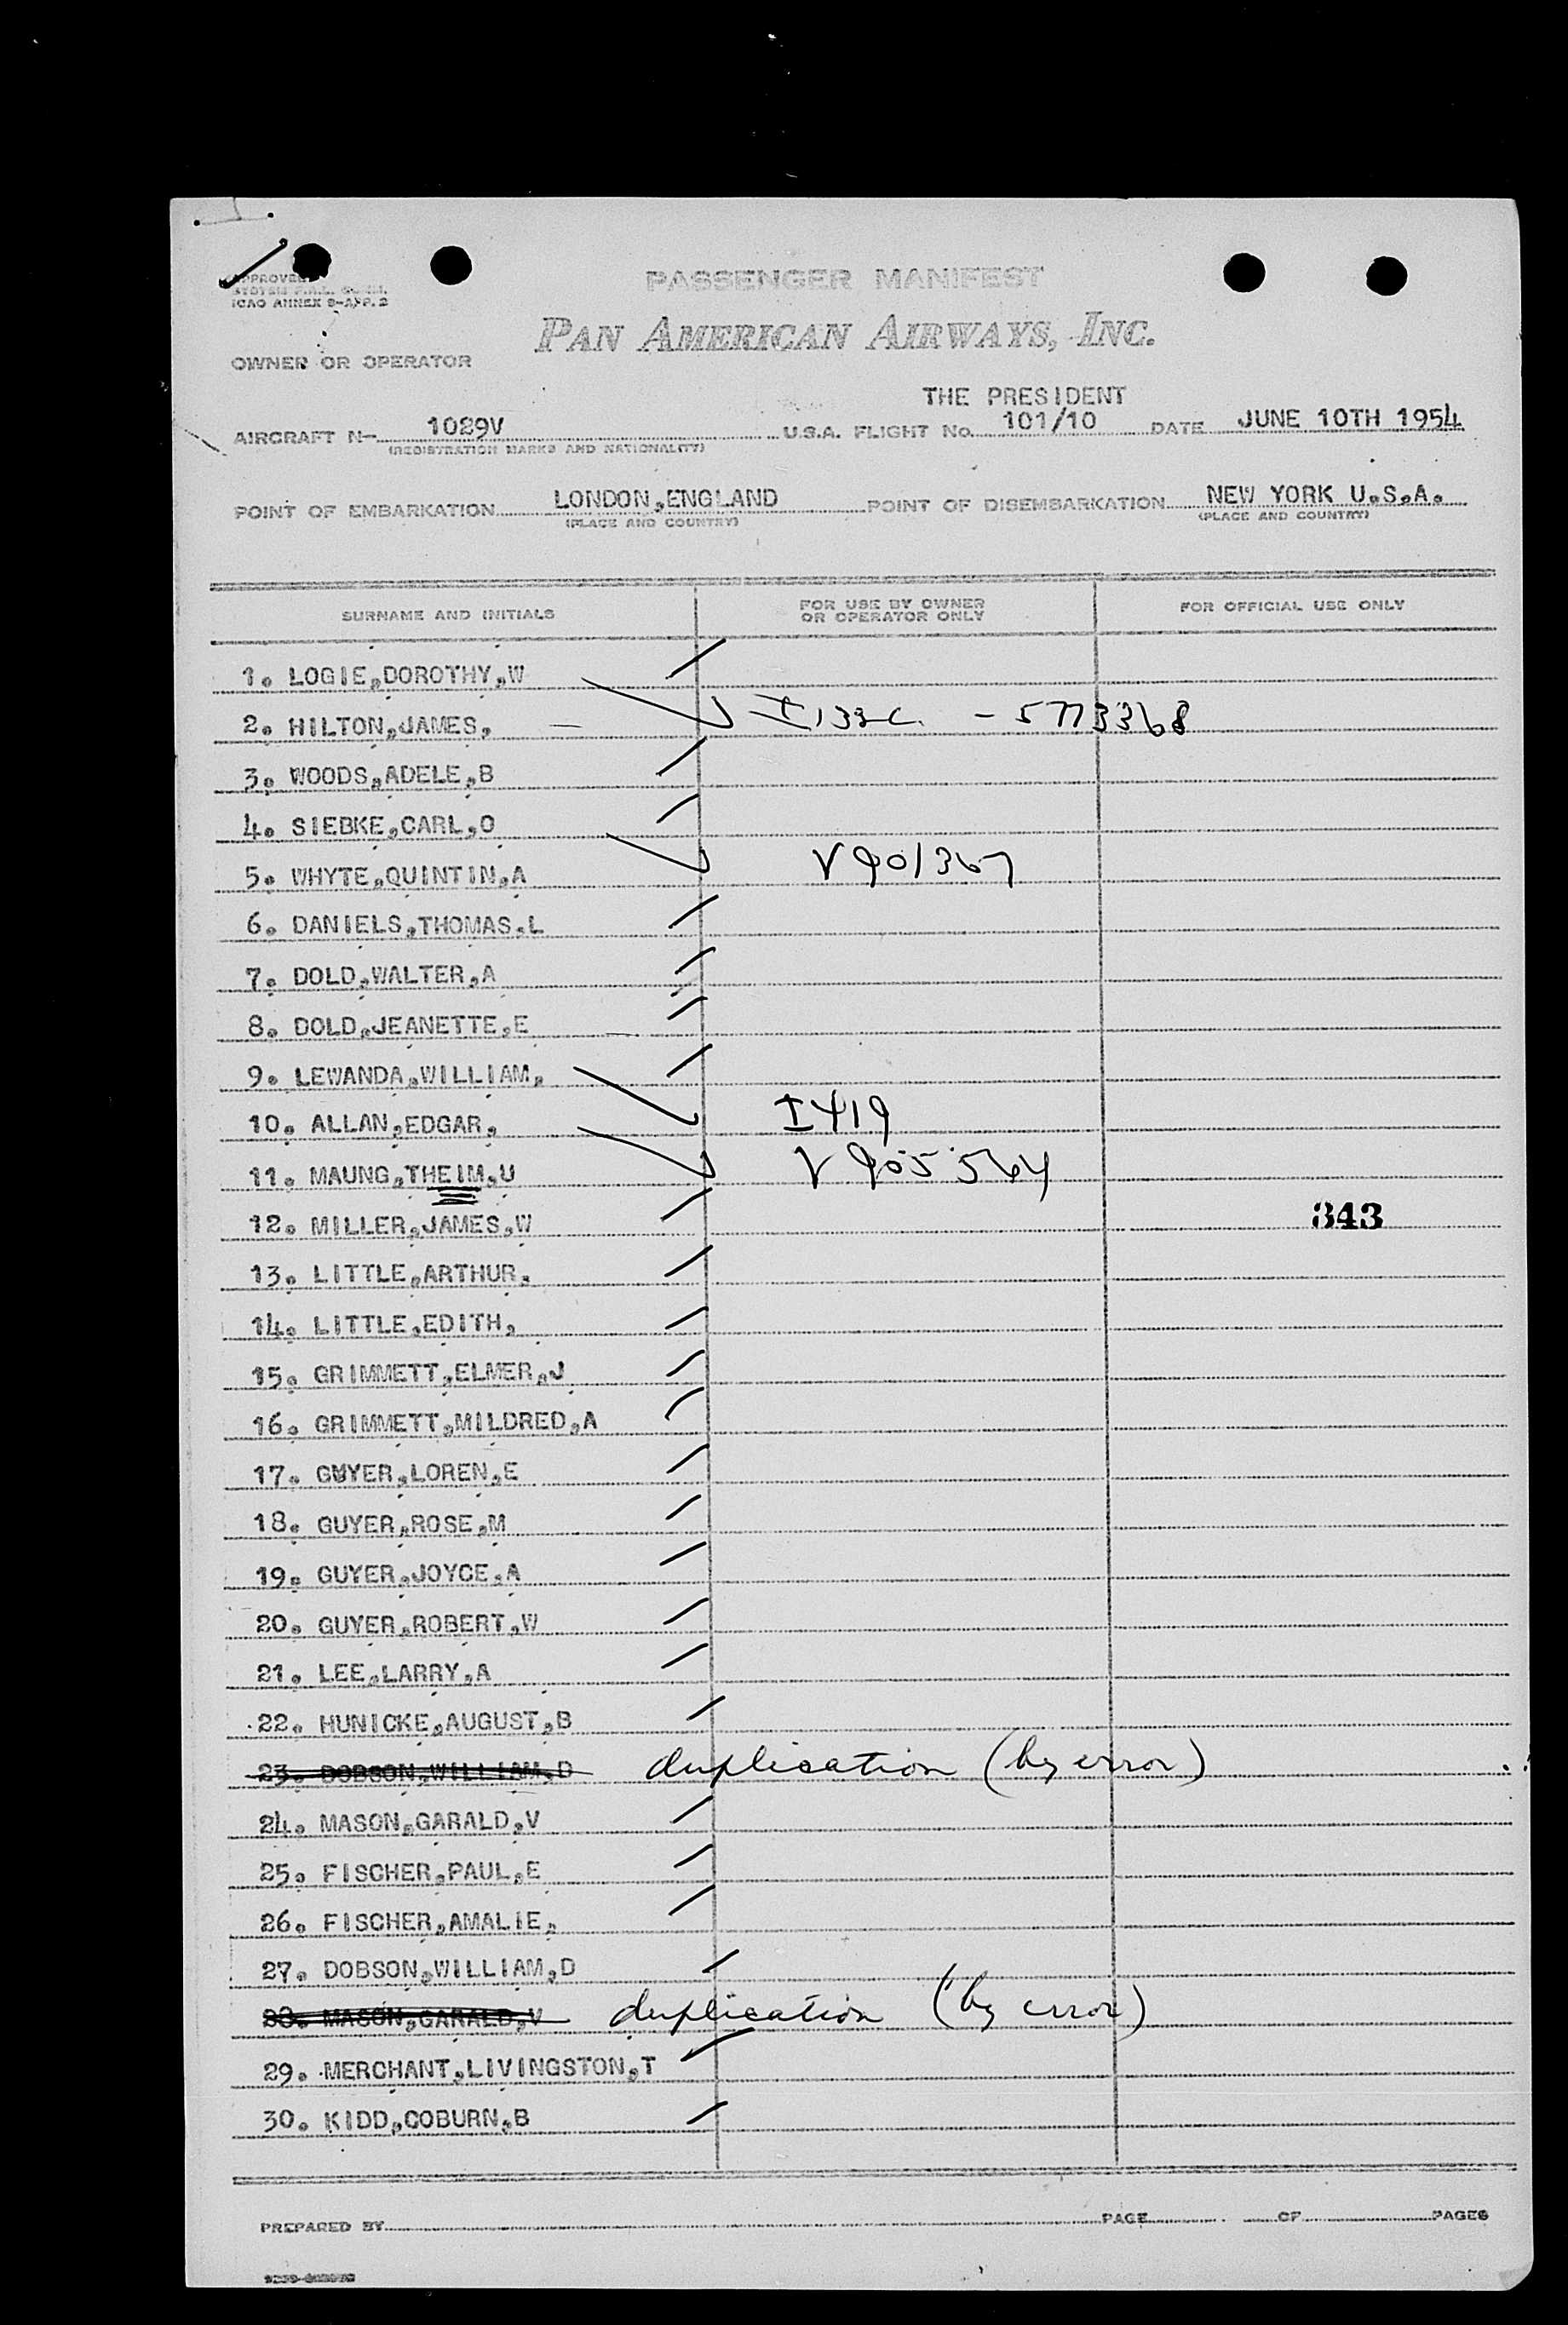 APPROVED
ICAO ANNEX 9-APP. 2
PASSENGER MANIFEST
PAN AMERICAN AIRWAYS, INC.
OWNER OR OPERATOR
THE PRESIDENT
AIRCRAFT N- 1029V U.S.A. FLIGHT No. 101/10 DATE JUNE 10TH 1954
(REGISTRATION MARKS AND NATIONALITY)
POINT OF EMBARKATION LONDON,ENGLAND POINT OF DISEMBARKATION NEW YORK U.S.A.
(PLACE AND COUNTRY) (PLACE AND COUNTRY)
SURNAME AND INITIALS FOR USE BY OWNER OR OPERATOR ONLY FOR OFFICIAL USE ONLY
1. LOGIE,DOROTHY,W
2. HILTON,JAMES, - 5773368
3. WOODS,ADELE,B
4. SIEBKE,CARL,O
5. WHYTE,QUINTIN,A V 901367
6. DANIELS,THOMAS,L
7. DOLD,WALTER,A
8. DOLD,JEANETTE,E
9. LEWANDA,WILLIAM,
10. ALLAN,EDGAR, I 419
11. MAUNG,THEIM,U V 905564
12. MILLER,JAMES,W 343
13. LITTLE,ARTHUR,
14. LITTLE,EDITH,
15. GRIMMETT,ELMER,J
16. GRIMMETT,MILDRED,A
17. GUYER,LOREN,E
18. GUYER,ROSE,M
19. GUYER,JOYCE,A
20. GUYER,ROBERT,W
21. LEE,LARRY,A
22. HUNICKE,AUGUST,B
23. DOBSON,WILLIAM,D duplication (by error)
24. MASON,GARALD,V
25. FISCHER,PAUL,E
26. FISCHER,AMALIE,
27. DOBSON,WILLIAM,D
MASON,GARALD,V duplication (by error)
29. MERCHANT,LIVINGSTON,T
30. KIDD,COBURN,B
PREPARED BY PAGE OF PAGES